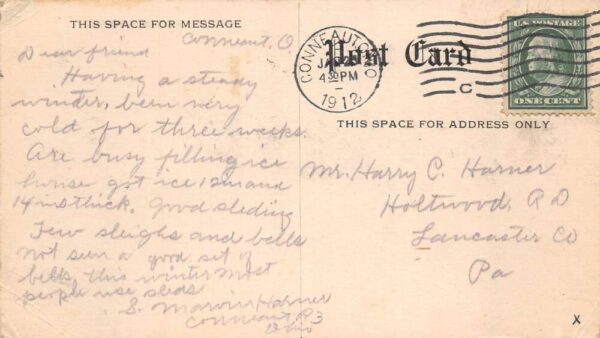 THIS SPACE FOR MESSAGE
Conneaut, O.
Dear friend
Having a steady
winter, been very
cold for three weeks.
Are busy filling ice
house got ice 12 in and
14 in thick. Good sleding
Few sleighs and bells
not seen a good set of
bells, this winter most
people use sleds
S. Marvin Harner
Conneaut R 3
Ohio
Post Card
CONNEAUT, OHIO
4 30 PM
1912
C
U.S. POSTAGE
ONE CENT
THIS SPACE FOR ADDRESS ONLY
Mr. Harry C. Harner
Holtwood, R D
Lancaster Co
Pa
X